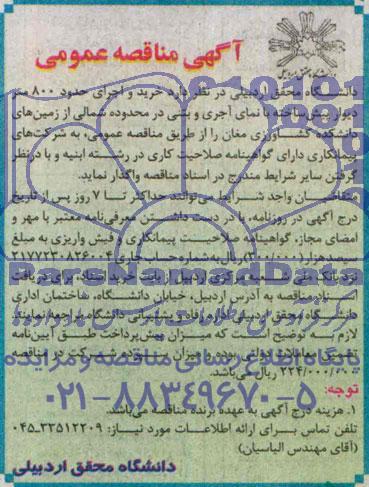 دانشگاه محقق اردبیلی
آگهی مناقصه عمومی
دانشگاه محقق اردبیلی در نظر دارد، خرید و اجرای حدود ۸۰۰ متر
دیوار پیش‌ساخته با نمای آجری و بتنی در محدوده شمالی از زمین‌های
دانشکده کشاورزی مغان را از طریق مناقصه عمومی، به شرکت‌های
پیمانکاری دارای گواهینامه صلاحیت کاری در رشته ابنیه و با درنظر
گرفتن سایر شرایط مندرج در اسناد مناقصه واگذار نماید.
متقاضیان واجد شرایط می‌توانند حداکثر تا ۷ روز پس از تاریخ
درج آگهی در روزنامه، با در دست داشتن معرفی‌نامه معتبر با مهر و
امضای مجاز، گواهینامه صلاحیت پیمانکاری و فیش واریزی به مبلغ
سیصدهزار (۳۰۰/۰۰۰) ریال به شماره حساب جاری ۲۱۷۷۲۳۰۸۲۶۰۰۴
نزد بانک ملی شعبه مرکزی اردبیل بابت خرید اسناد، برای دریافت
اسناد مناقصه به آدرس اردبیل، خیابان دانشگاه، ساختمان اداری
دانشگاه محقق اردبیلی اداره رفاه و پشتیبانی دانشگاه مراجعه نمایند.
لازم به توضیح است که میزان پیش‌پرداخت طبق آیین‌نامه
معاملات دولتی بوده و میزان سپرده شرکت در مناقصه
۲۲۴/۰۰۰/۰۰۰ ریال می‌باشد.
توجه:
۱. هزینه درج آگهی به عهده برنده مناقصه می‌باشد.
تلفن تماس برای ارائه اطلاعات مورد نیاز: ۳۳۵۱۲۲۰۹-۰۴۵
(آقای مهندس الیاسیان)
دانشگاه محقق اردبیلی
ParsNamadData
۰۲۱-۸۸۳۴۹۶۷۰-۵